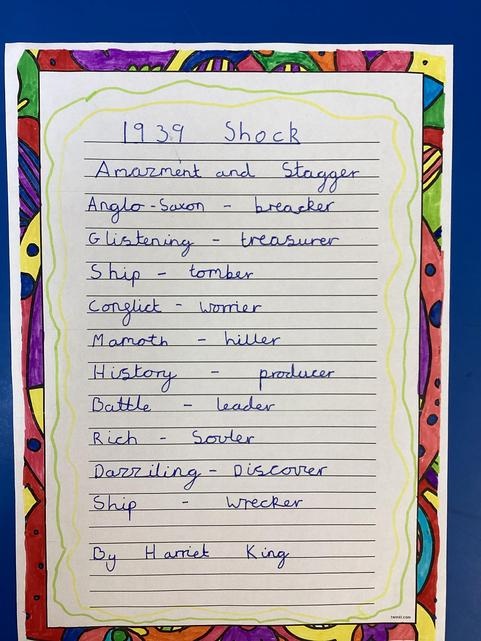 1939 Shock
Amazment and Stagger
Anglo-Saxon - breacker
Glistening - treasurer
Ship - tomber
Conflict - worrier
Mamoth - hiller
History - producer
Battle - leader
Rich - Sovler
Dazziling - Discover
Ship - wrecker
By Harriet King
twinkl.com